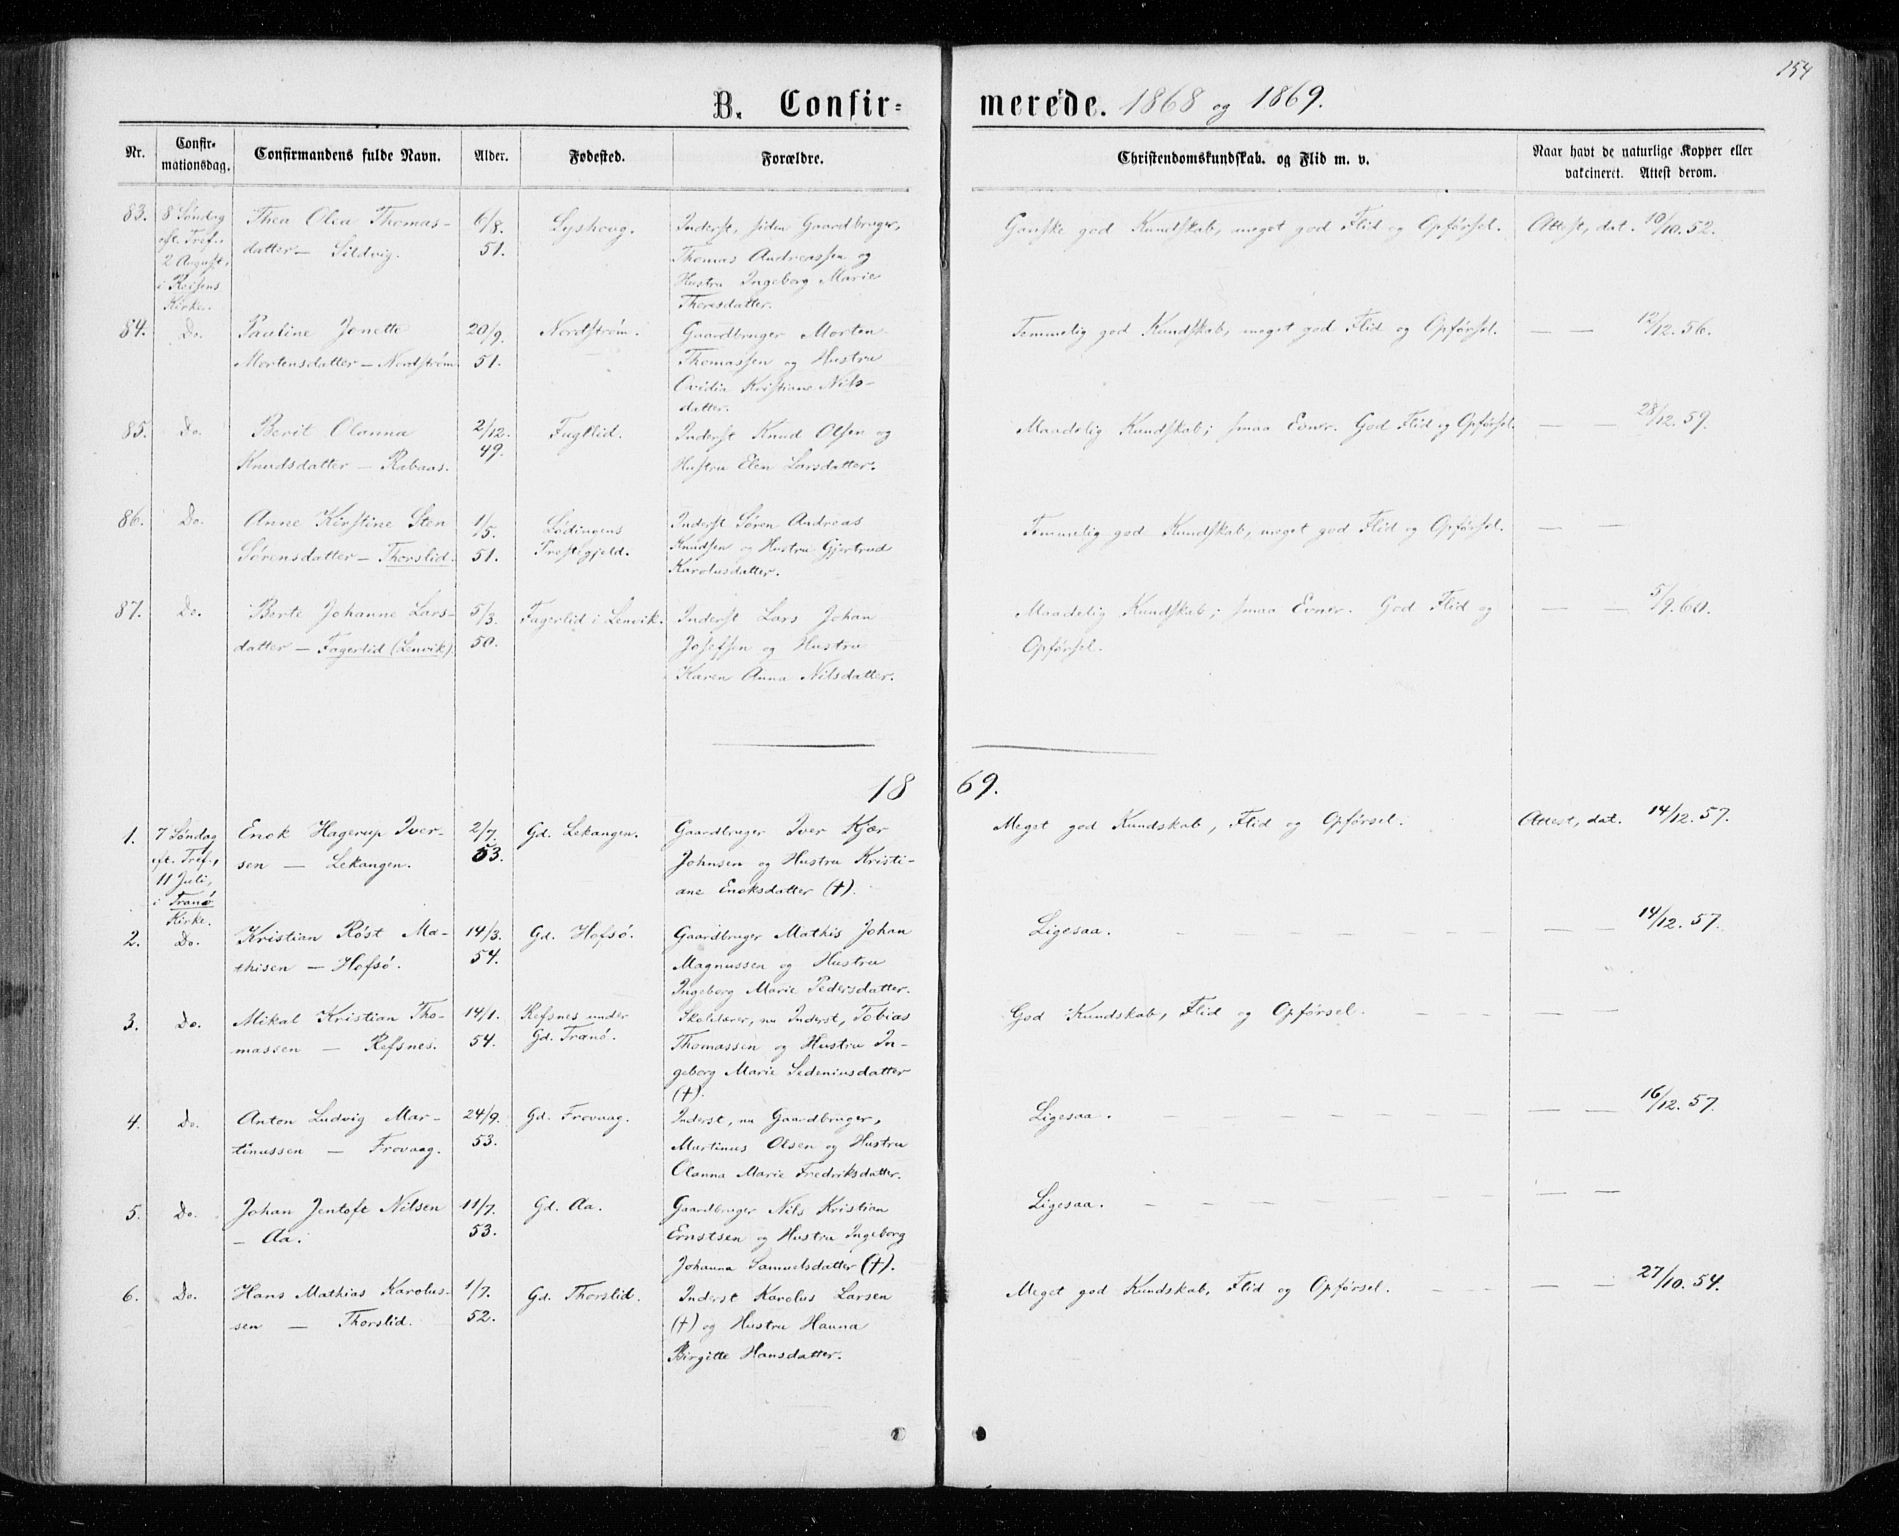 154
B. Confir= merede. 1868 og 1869.
Nr. Confir-mationsdag. Confirmandens fulde Navn. Alder. Fødested. Forældre. Christendomskundskab. og Flid m. v. Naar havt de naturlige Kopper eller vakcineret. Attest derom.
83. 8 Søndag Thea Olea Thomas- 6/8. Lyshoug. Inderst, siden Gaardbruger, Ganske god Kundskab, meget god Flid og Opførsel. Attest, dat. 10/10. 52.
eft. Tref., datter — Sildvig. 51. Thomas Andreassen og
2 August, Hustru Ingeborg Marie
i Reisens Thoresdatter.
Kirke.
84. Do. Pauline Jonette 20/9. Nordstrøm. Gaardbruger Morten Temmelig god Kundskab, meget god Flid og Opførsel. — — 12/12. 56.
Mortensdatter — Nordstrøm. 51. Thomassen og Hustru
Ovidia Kristiane Nils-
datter.
85. Do. Berit Olanna 2/12. Fuglid. Inderst Knud Olsen og Maadelig Kundskab; smaa Evner. God Flid og Opførsel. 28/12. 59.
Knudsdatter — Rabaas. 49. Hustru Elen Larsdatter.
86. Do. Anne Kirstine Sten 1/5. Lødingens Inderst Søren Andreas Temmelig god Kundskab, meget god Flid og Opførsel. — —
Sørensdatter — Thorslid. 51. Præstegjeld. Knudsen og Hustru Gjertrud
Karolusdatter.
87. Do. Berte Johanne Lars- 5/3. Fagerlid i Lenvik. Inderst Lars Johan Maadelig Kundskab; smaa Evner. God Flid og — — 5/9. 60.
datter — Fagerlid (Lenvik). 50. Josefsen og Hustru Opførsel.
Karen Anna Nilsdatter.
18 69.
1. 7 Søndag Enok Hagerup Iver- 2/7. Gd. Lekangen. Gaardbruger Iver Kjær Meget god Kundskab, Flid og Opførsel. Attest, dat. 14/12. 57.
eft. Tref., sen — Lekangen. 53. Johnsen og Hustru Kristi-
11 Juli, ane Enoksdatter (†).
i Tranø
Kirke.
2. Do. Kristian Røst Ma- 14/3. Gd. Hofsø. Gaardbruger Mathis Johan Ligesaa. — — 14/12. 57.
thisen — Hofsø. 54. Magnussen og Hustru
Ingeborg Marie Pedersdatter.
3. Do. Mikal Kristian Tho- 14/1. Refsnes under Skolelærer, nu Inderst, Tobias God Kundskab, Flid og Opførsel. — —
massen — Refsnes. 54. Gd. Tranø. Thomassen og Hustru In-
geborg Marie Sedeniusdatter
(†).
4. Do. Anton Ludvig Mar- 24/9. Gd. Frovaag. Inderst, nu Gaardbruger, Ligesaa. — — 16/12. 57.
tinussen — Frovaag. 53. Martinus Olsen og Hustru
Olanna Marie Fredriksdatter.
5. Do. Johan Jentoft Nilsen 11/7. Gd. Aa. Gaardbruger Nils Kristian Ligesaa. — —
— Aa. 53. Ernstsen og Hustru Ingeborg
Johanna Samuelsdatter (†).
6. Do. Hans Mathias Karolus- 1/7. Gd. Thorslid. Inderst Karolus Larsen Meget god Kundskab, Flid og Opførsel. — — 27/10. 54.
sen — Thorslid. 52. (†) og Hustru Hanna
Birgitte Hansdatter.